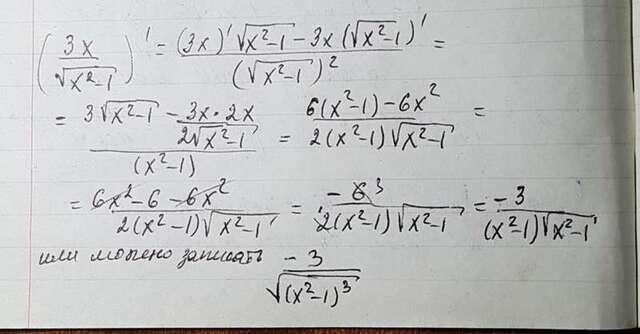 (3x/√(x²-1))' = ((3x)'√(x²-1) - 3x(√(x²-1))')/(√(x²-1))² =
= (3√(x²-1) - 3x·2x/(2√(x²-1)))/(x²-1) = (6(x²-1) - 6x²)/(2(x²-1)√(x²-1)) =
= (6x² - 6 - 6x²)/(2(x²-1)√(x²-1)) = (-6 3)/(2(x²-1)√(x²-1)) = -3/((x²-1)√(x²-1))
или можно записать -3/√((x²-1)³)